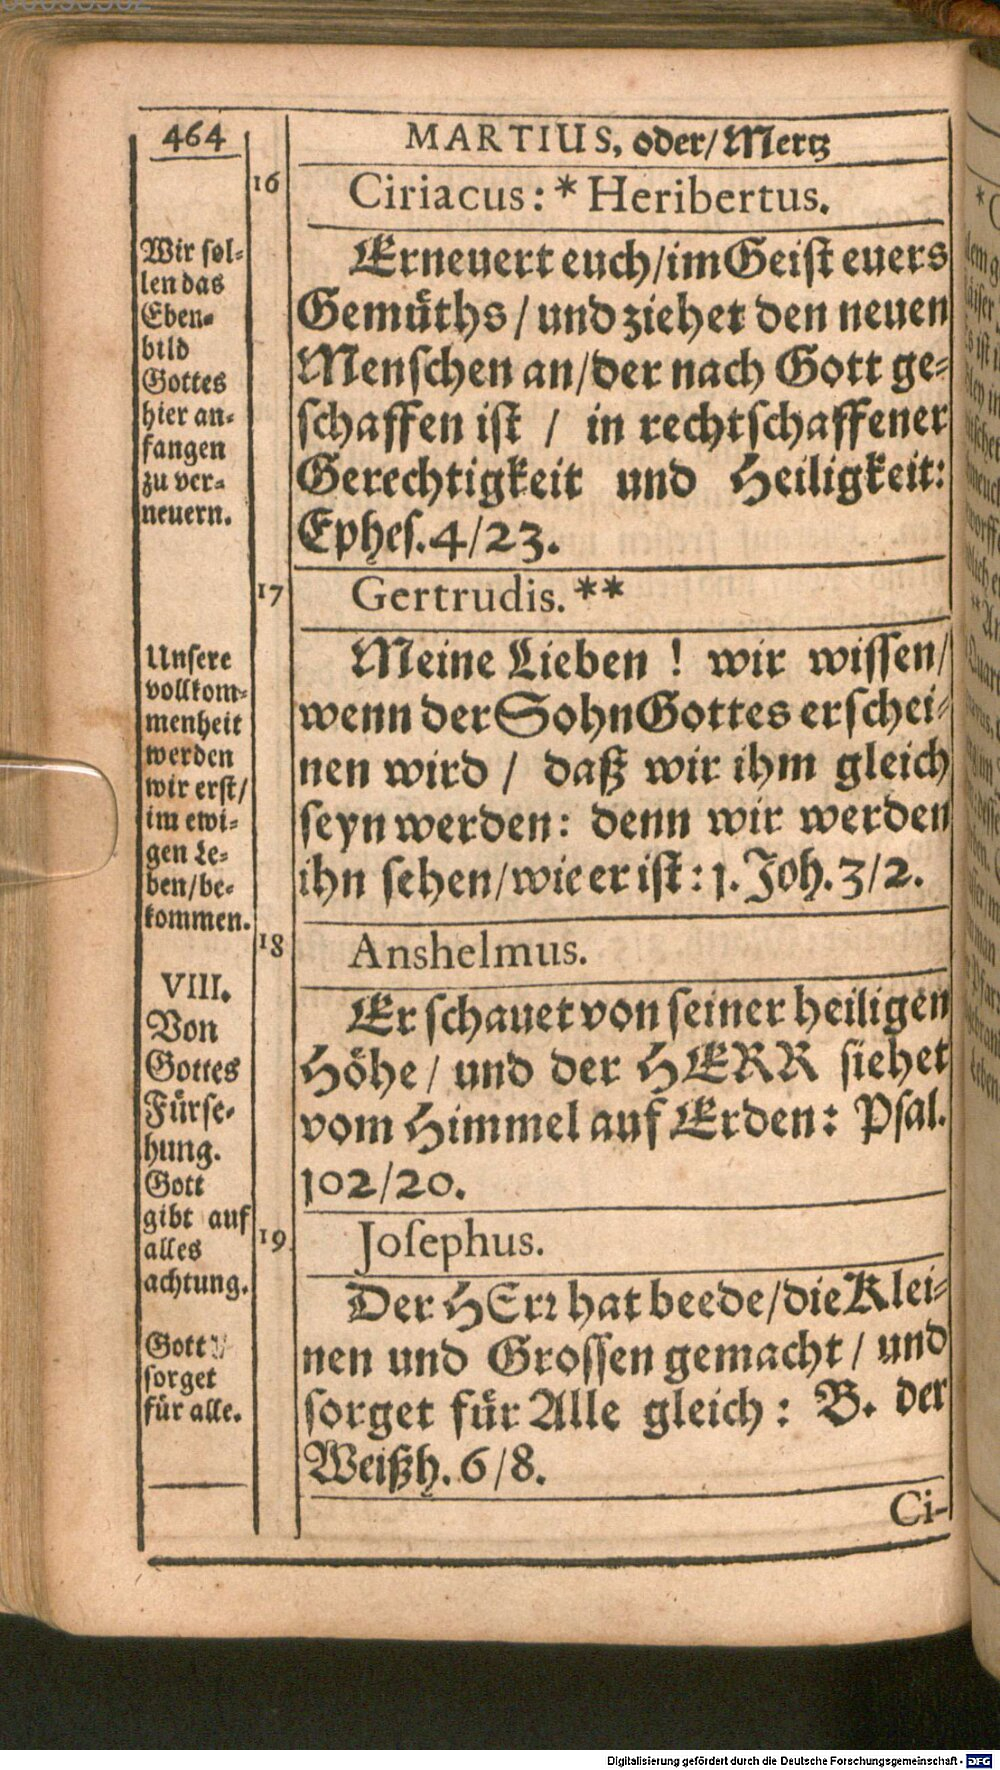 464
MARTIUS, oder/Mertz
16
Ciriacus: * Heribertus.
Wir sol-
len das
Eben-
bild
Gottes
hier an-
fangen
zu ver-
neuern.
Erneuert euch/im Geist euers
Gemüths / und ziehet den neuen
Menschen an/der nach Gott ge-
schaffen ist / in rechtschaffener
Gerechtigkeit und Heiligkeit:
Ephes. 4/23.
17
Gertrudis. **
Unsere
vollkom-
menheit
werden
wir erst/
im ewi-
gen Le-
ben/be-
kommen.
Meine Lieben ! wir wissen/
wenn der Sohn Gottes erschei-
nen wird / daß wir ihm gleich
seyn werden: denn wir werden
ihn sehen/wie er ist: 1. Joh. 3/2.
18
Anshelmus.
VIII.
Von
Gottes
Fürse-
hung.
Gott
gibt auf
alles
achtung.
Er schauet von seiner heiligen
Höhe / und der HERR siehet
vom Himmel auf Erden: Psal.
102/20.
19
Josephus.
Gott
sorget
für alle.
Der HErr hat beede/die Klei-
nen und Grossen gemacht / und
sorget für Alle gleich : B. der
Weißh. 6/8.
Ci-
Digitalisierung gefördert durch die Deutsche Forschungsgemeinschaft - DFG